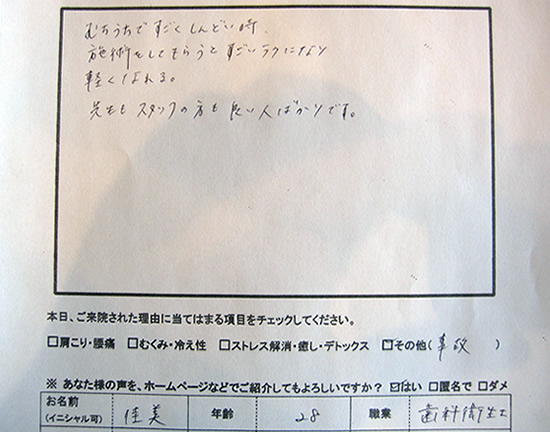 むちうちですごくしんどい時、
施術をしてもらうとすごいラクになり
軽くなれる。
先生もスタッフの方も良い人ばかりです。
本日、ご来院された理由に当てはまる項目をチェックしてください。
□肩こり・腰痛 □むくみ・冷え性 □ストレス解消・癒し・デトックス ☑その他(事故)
※ あなた様の声を、ホームページなどでご紹介してもよろしいですか? ☑はい □匿名で □ダメ
お名前 (イニシャル可) 佳美 年齢 28 職業 歯科衛生士